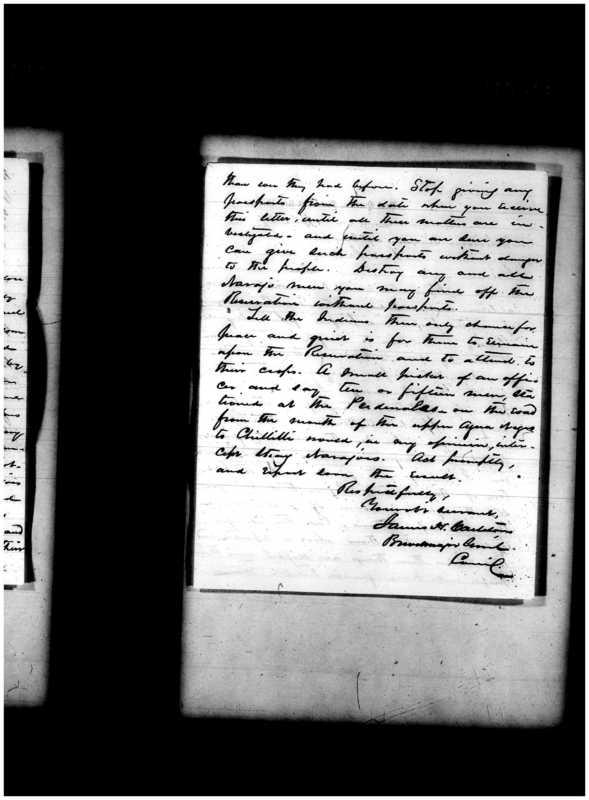 than were they had before. Stop giving any
passports from the date when you receive
this letter, until all these matters are in-
vestigated - and until you are sure you
can give such passports without danger
to the people. Destroy any and all
Navajo men you may find off the
Reservation without passports.
Tell the Indians their only chance for
peace and quiet is for them to remain
upon the Reservation and to attend to
their crops. A small picket of an offi
cer and say ten or fifteen men, sta
tioned at the Perdenales - on the road
from the mouth of the upper Agua Negra
to Chillilli would, in my opinion, inter-
cept stray Navajoes. Act promptly,
and report soon the result.
Respectfully,
Your obt servant,
James H. Carleton
Brev. Major Genl.
Comd'g
and